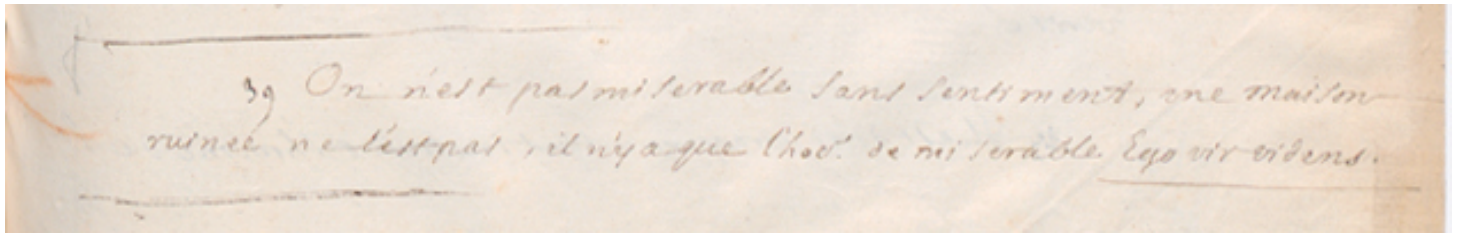 39 On n'est pas miserable sans sentiment, une maison
ruinée ne l'est pas, il n'y a que l'ho͂e. de miserable Ego vir videns.